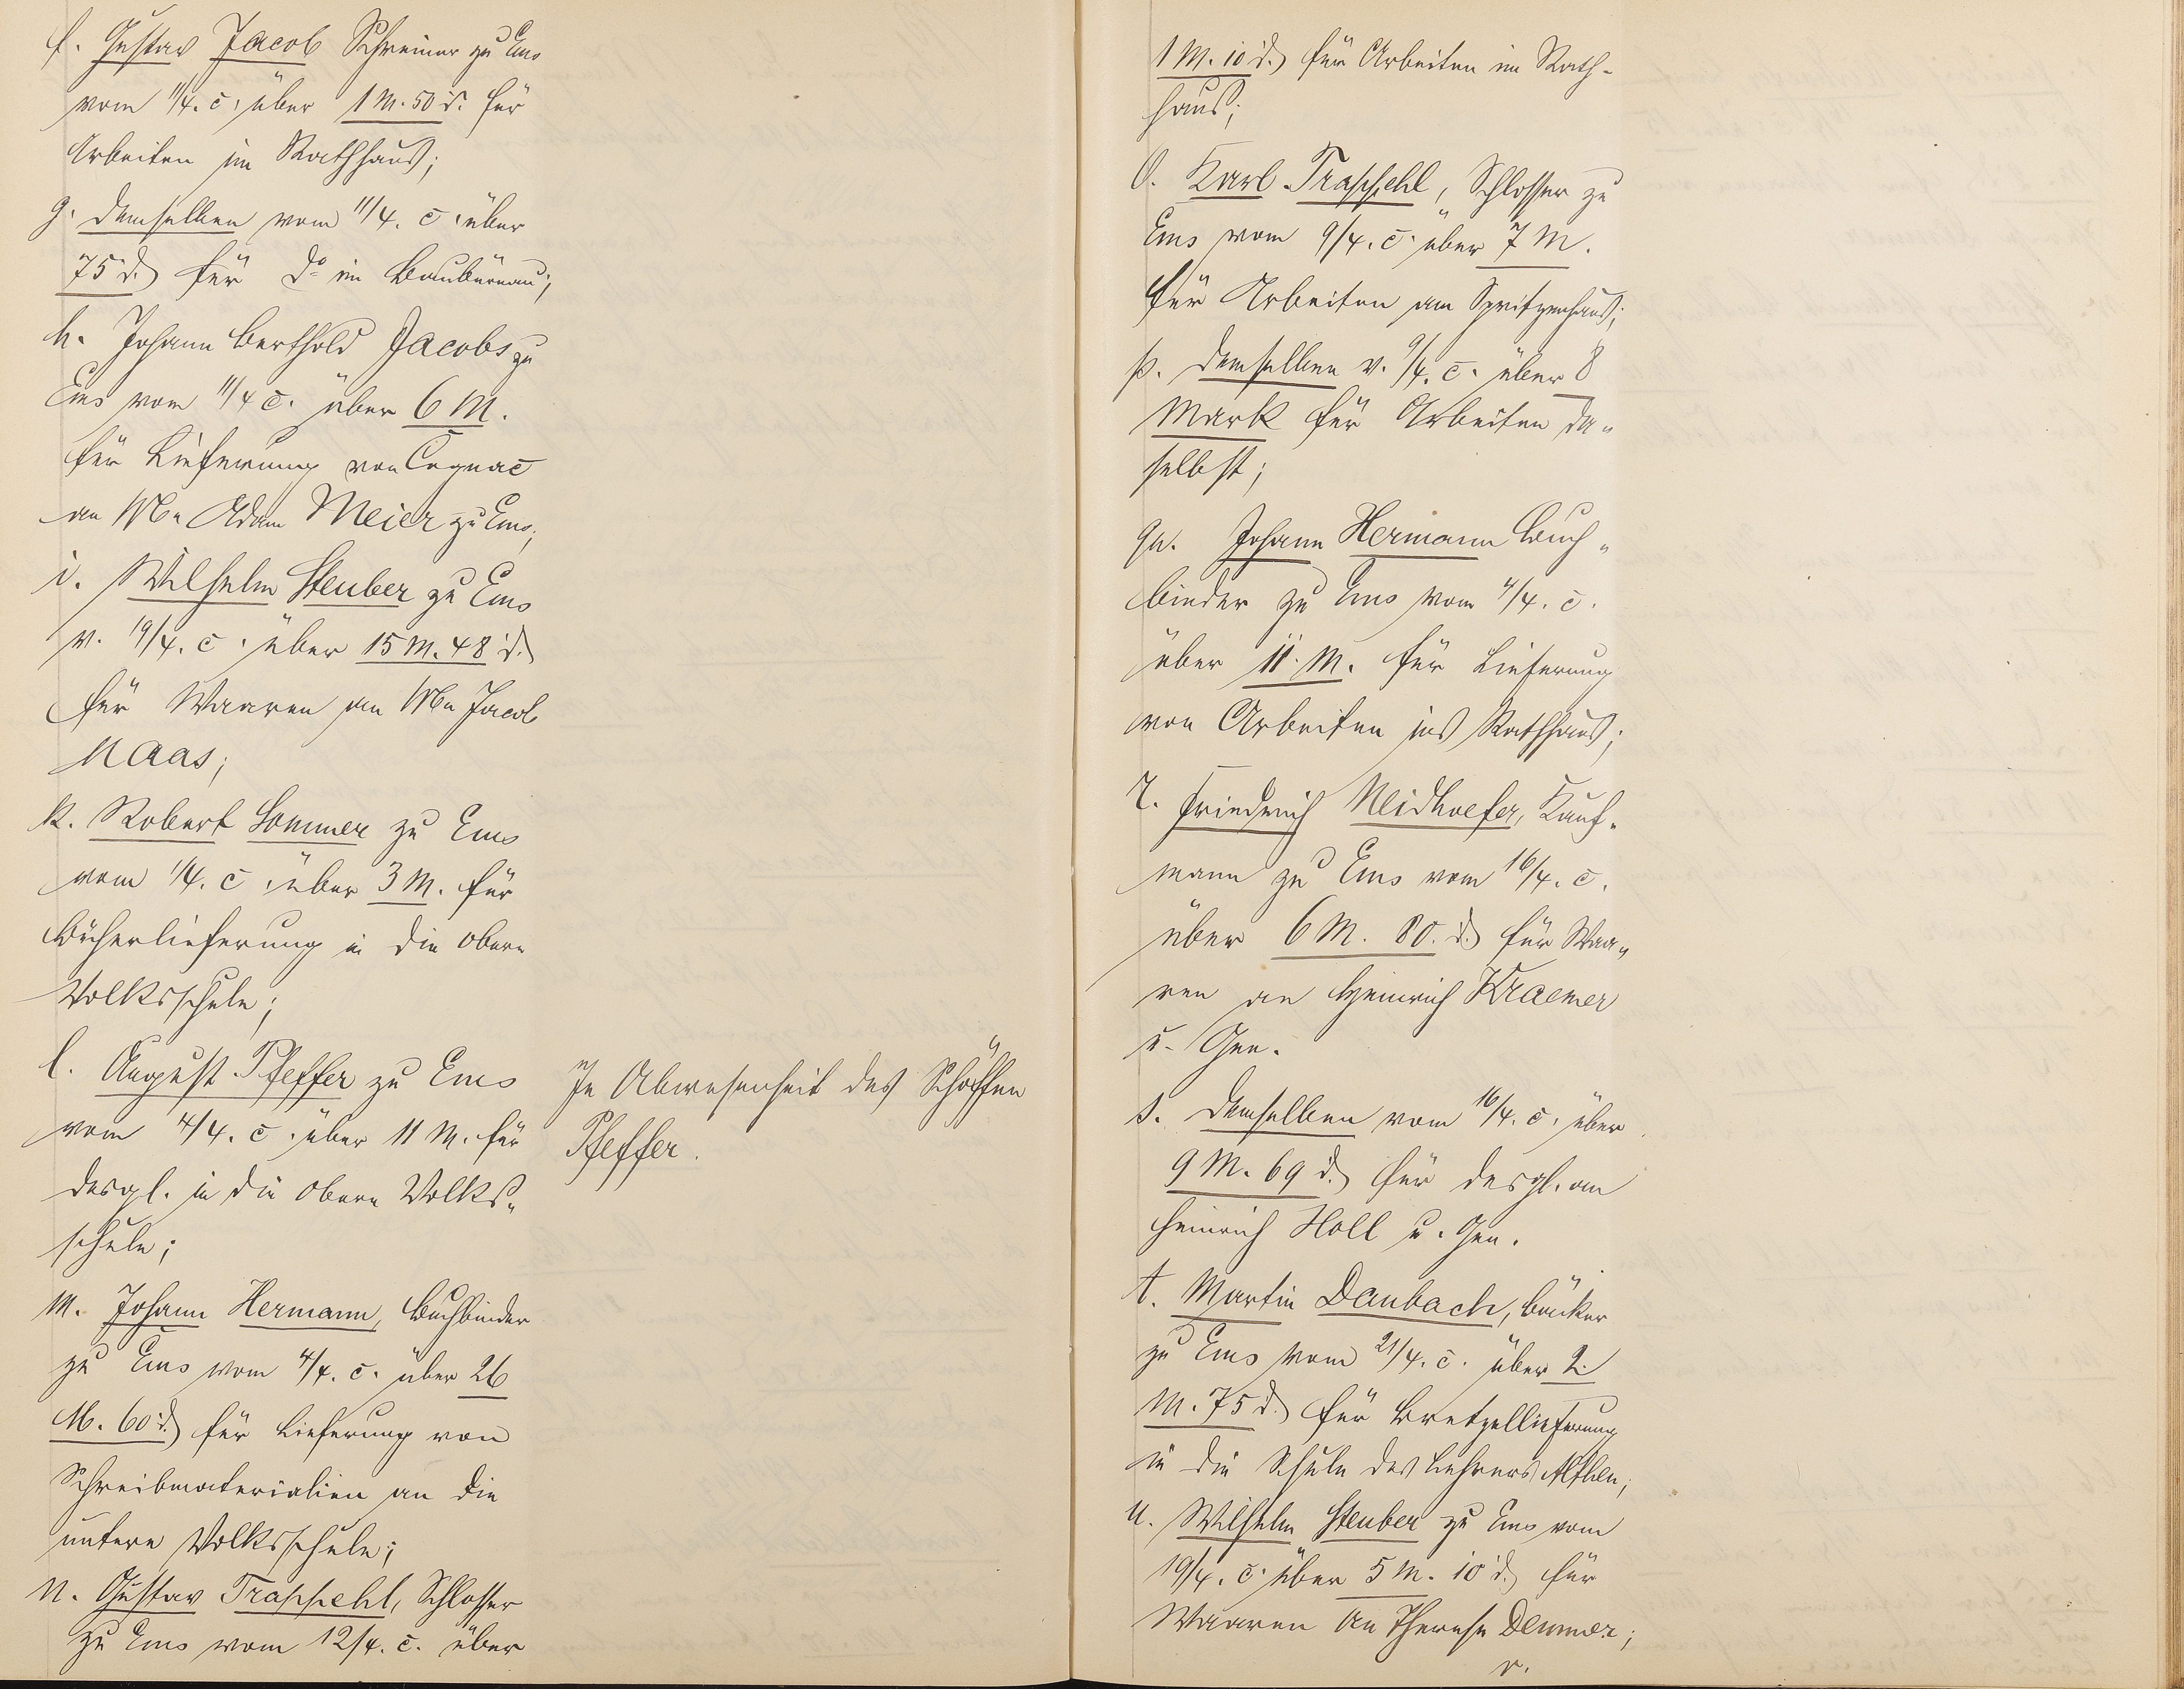 f. Gustav Jacob Schreiner zu Ems
vom 11/4. c. über 1 M. 50 d. für
Arbeiten im Rathhaus;
g. demselben vom 11/4. c. über
75 d. für do im Baubüreau;
h. Johann Berthold Jacobs zu
Ems vom 11/4 c. über 6 M.
für Lieferung von Cognac
an Adam Meier zu Ems;
i. Wilhelm Steuber zu Ems
v. 19/4. c. über 15 M. 48 d.
für Waaren an Jacob
Maas;
k. Robert Sommer zu Ems
vom 1/4. c. über 3 M. für
Bücherlieferung in die obere
Volksschule;
l. August Pfeffer zu Ems
vom 4/4. c. über 11 M. für
desgl. in die obere Volks-
schule;
m. Johann Hermann, Buchbinder
zu Ems vom 4/4. c. über 26
M. 60 d. für Lieferung von
Schreibmaterialien an die
untere Volksschule;
n. Gustav Trappehl, Schlosser
zu Ems vom 12/4. c. über
In Abwesenheit des Schöffen
Pfeffer.
1 M. 10 d. für Arbeiten im Rath-
haus;
o. Karl Trappehl, Schlosser zu
Ems vom 9/4. c. über 7 M.
für Arbeiten am Spritzenhaus;
p. demselben v. 9/4. c. über 8
Mark für Arbeiten da-
selbst;
qu. Johann Hermann Buch-
binder zu Ems vom 4/4. c.
über 11 M. für Lieferung
von Arbeiten ins Rathhaus;
r. Friedrich Neidhoefer, Kauf-
mann zu Ems vom 16/4. c.
über 6 M. 80. d. für Waa-
ren an Heinrich Kraemer
u. Gen.
s. demselben vom 16/4. c. über
9 M. 69 d. für desgl. an
Heinrich Holl u. Gen.
t. Martin Daubach, Bäcker
zu Ems vom 21/4. c. über 2
M. 75 d. für Bretzellieferung
in die Schule des Lehrers Althen;
u. Wilhelm Steuber zu Ems vom
19/4. c. über 5 M. 10 d. für
Waaren an Therese Demmer;
v.